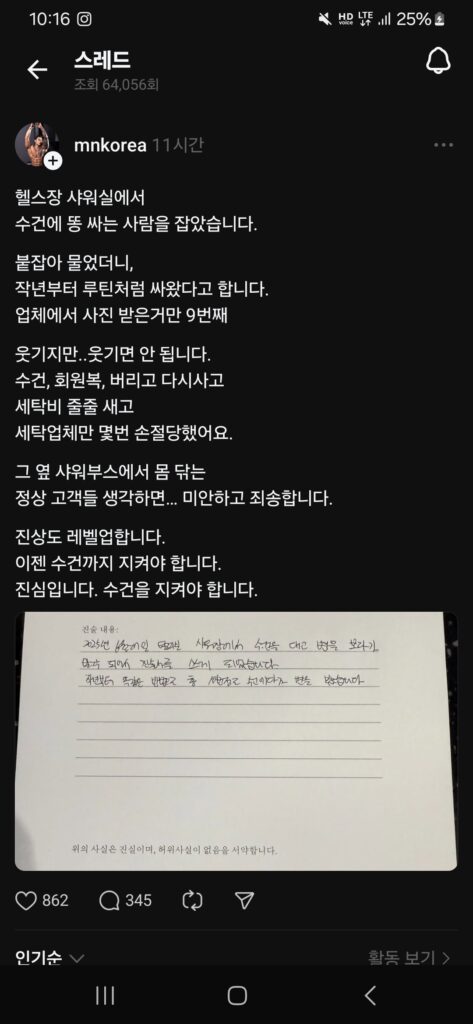 10:16
HD voice LTE 25%
스레드
조회 64,056회
mnkorea 11시간
헬스장 샤워실에서
수건에 똥 싸는 사람을 잡았습니다.
붙잡아 물었더니,
작년부터 루틴처럼 싸왔다고 합니다.
업체에서 사진 받은거만 9번째
웃기지만..웃기면 안 됩니다.
수건, 회원복, 버리고 다시사고
세탁비 줄줄 새고
세탁업체만 몇번 손절당했어요.
그 옆 샤워부스에서 몸 닦는
정상 고객들 생각하면... 미안하고 죄송합니다.
진상도 레벨업합니다.
이젠 수건까지 지켜야 합니다.
진심입니다. 수건을 지켜야 합니다.
진술 내용:
2025년 샤워장에서 수건을 대고 변을 보다가
진술서를 쓰게 되었습니다.
작년부터 변을 봤습니다.
위의 사실은 진실이며, 허위사실이 없음을 서약합니다.
862 345
인기순 활동 보기